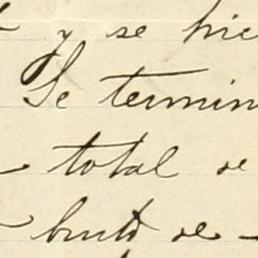 y se hic
Se termin
total de
de